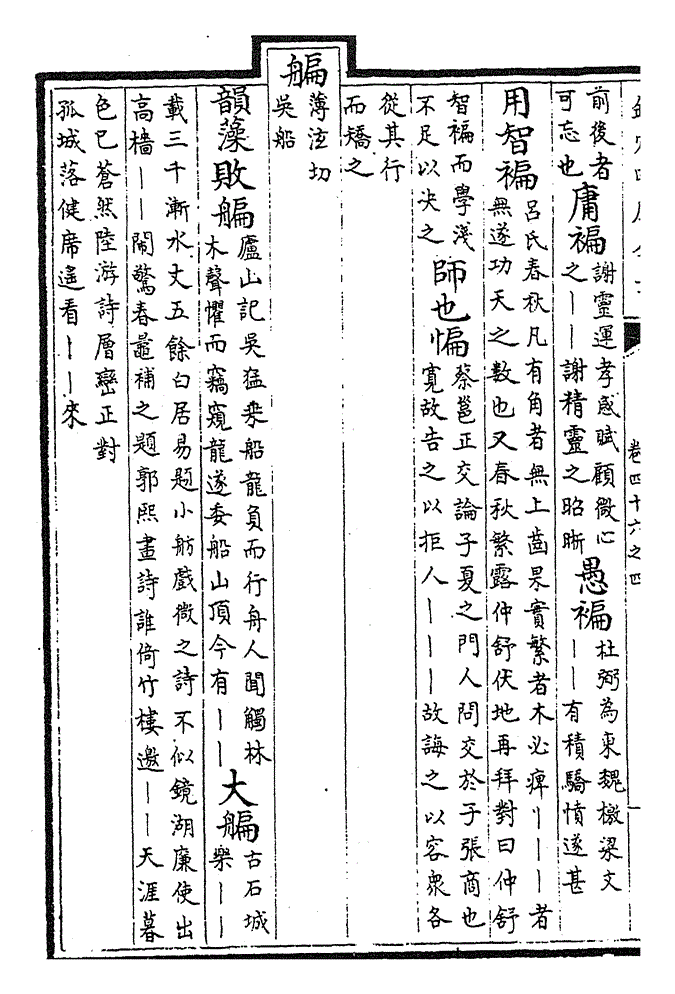 卷四十六之四
前後者
可忘也
庸褊
謝靈運孝感賦顧微心
之丨丨謝精靈之昭晰
愚褊
杜弼為東魏檄梁文
丨丨有積驕憤遂甚
用智褊
呂氏春秋凡有角者無上齒果實繁者木必痺丨丨丨者
無遂功天之數也又春秋繁露仲舒伏地再拜對曰仲舒
智褊而學淺
不足以决之
師也惼
蔡邕正交論子夏之門人問交於子張商也
寛故告之以拒人丨丨丨故誨之以容衆各
從其行
而矯之
艑
薄泫切
吳船
韻藻敗艑
廬山記吳猛乗船龍負而行舟人聞觸林
木聲懼而竊窺龍遂委船山頂今有丨丨
大艑
古石城
樂丨丨
載三千漸水丈五餘白居易題小舫戲微之詩不似鏡湖廉使出
高檣丨丨鬧驚春鼂補之題郭熙畫詩誰倚竹樓邀丨丨天涯暮
色已蒼然陸游詩層巒正對
孤城落健席遥看丨丨來